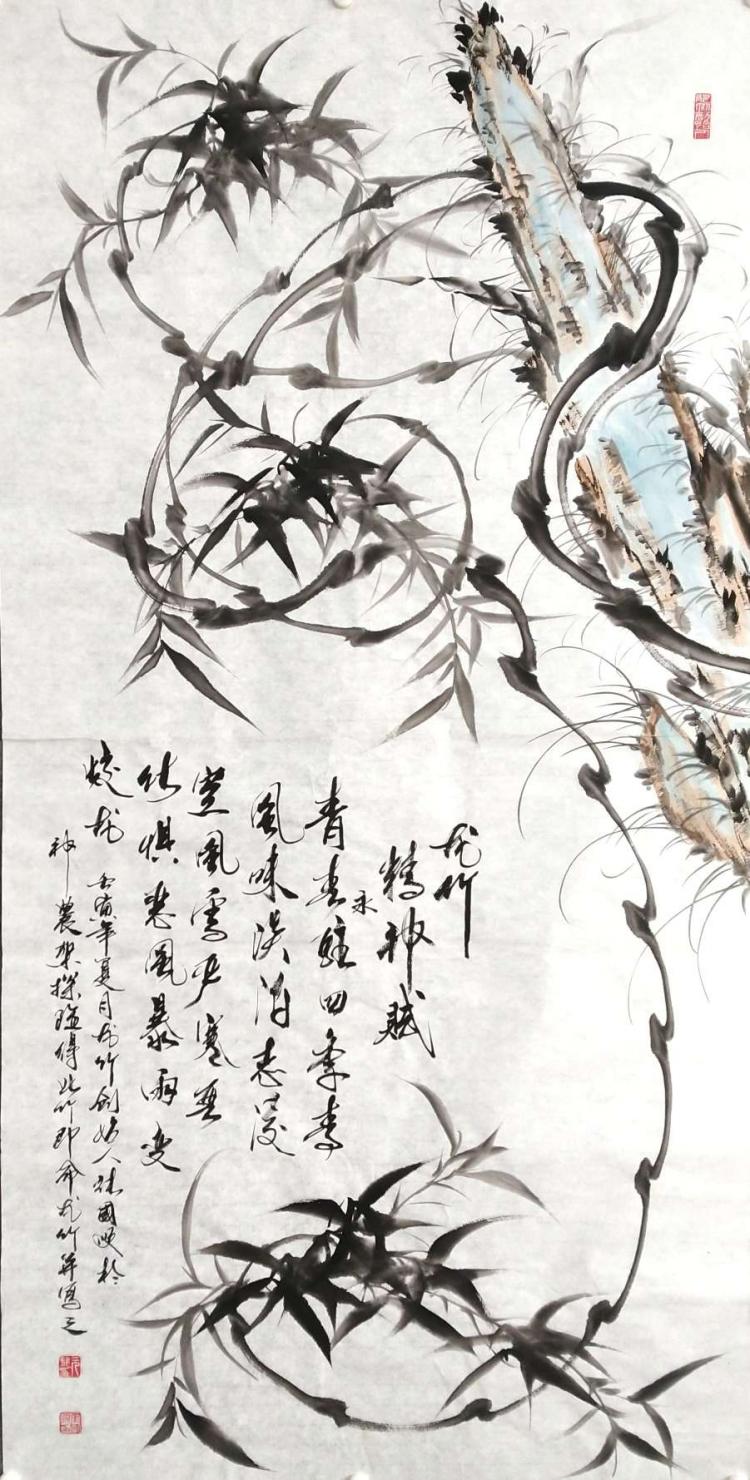 龙竹
精神赋
青春永驻四季春
风味淡泊志凌
云风雪严寒无
所惧悲风暴雨变
蛟龙
壬寅年夏月龙竹创始人 國 於
神農架探 得此竹即命龙竹并写之